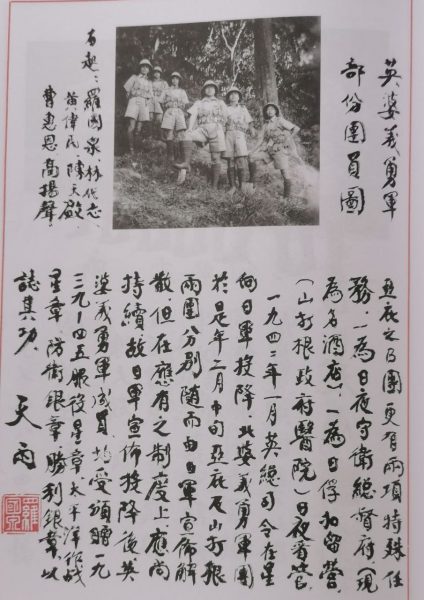 英婆義勇軍
部份團員圖
右起：羅國泉、林代忠、
黃偉民、陳天啟、
曹惠恩、高揚聲。
亞庇之乃團更有兩項特殊任
務。一為日夜守衛總督府（現
為名酒店）一為日俘扣留營
（山打根政府醫院）日夜看管。
一九四二年一月英總司令在星
向日軍投降，北婆義勇軍團
於是年一月中旬亞庇及山打根
兩團分別隨而由日軍宣佈解
散。但在應有之制度上應尚
持續。故日軍宣佈投降後英
婆義勇軍成員，均受頒贈一九
三九－四五服役星章、太平洋作戰
星章、防衛銀章、勝利銀章，以
誌其功。
天雨
羅國泉